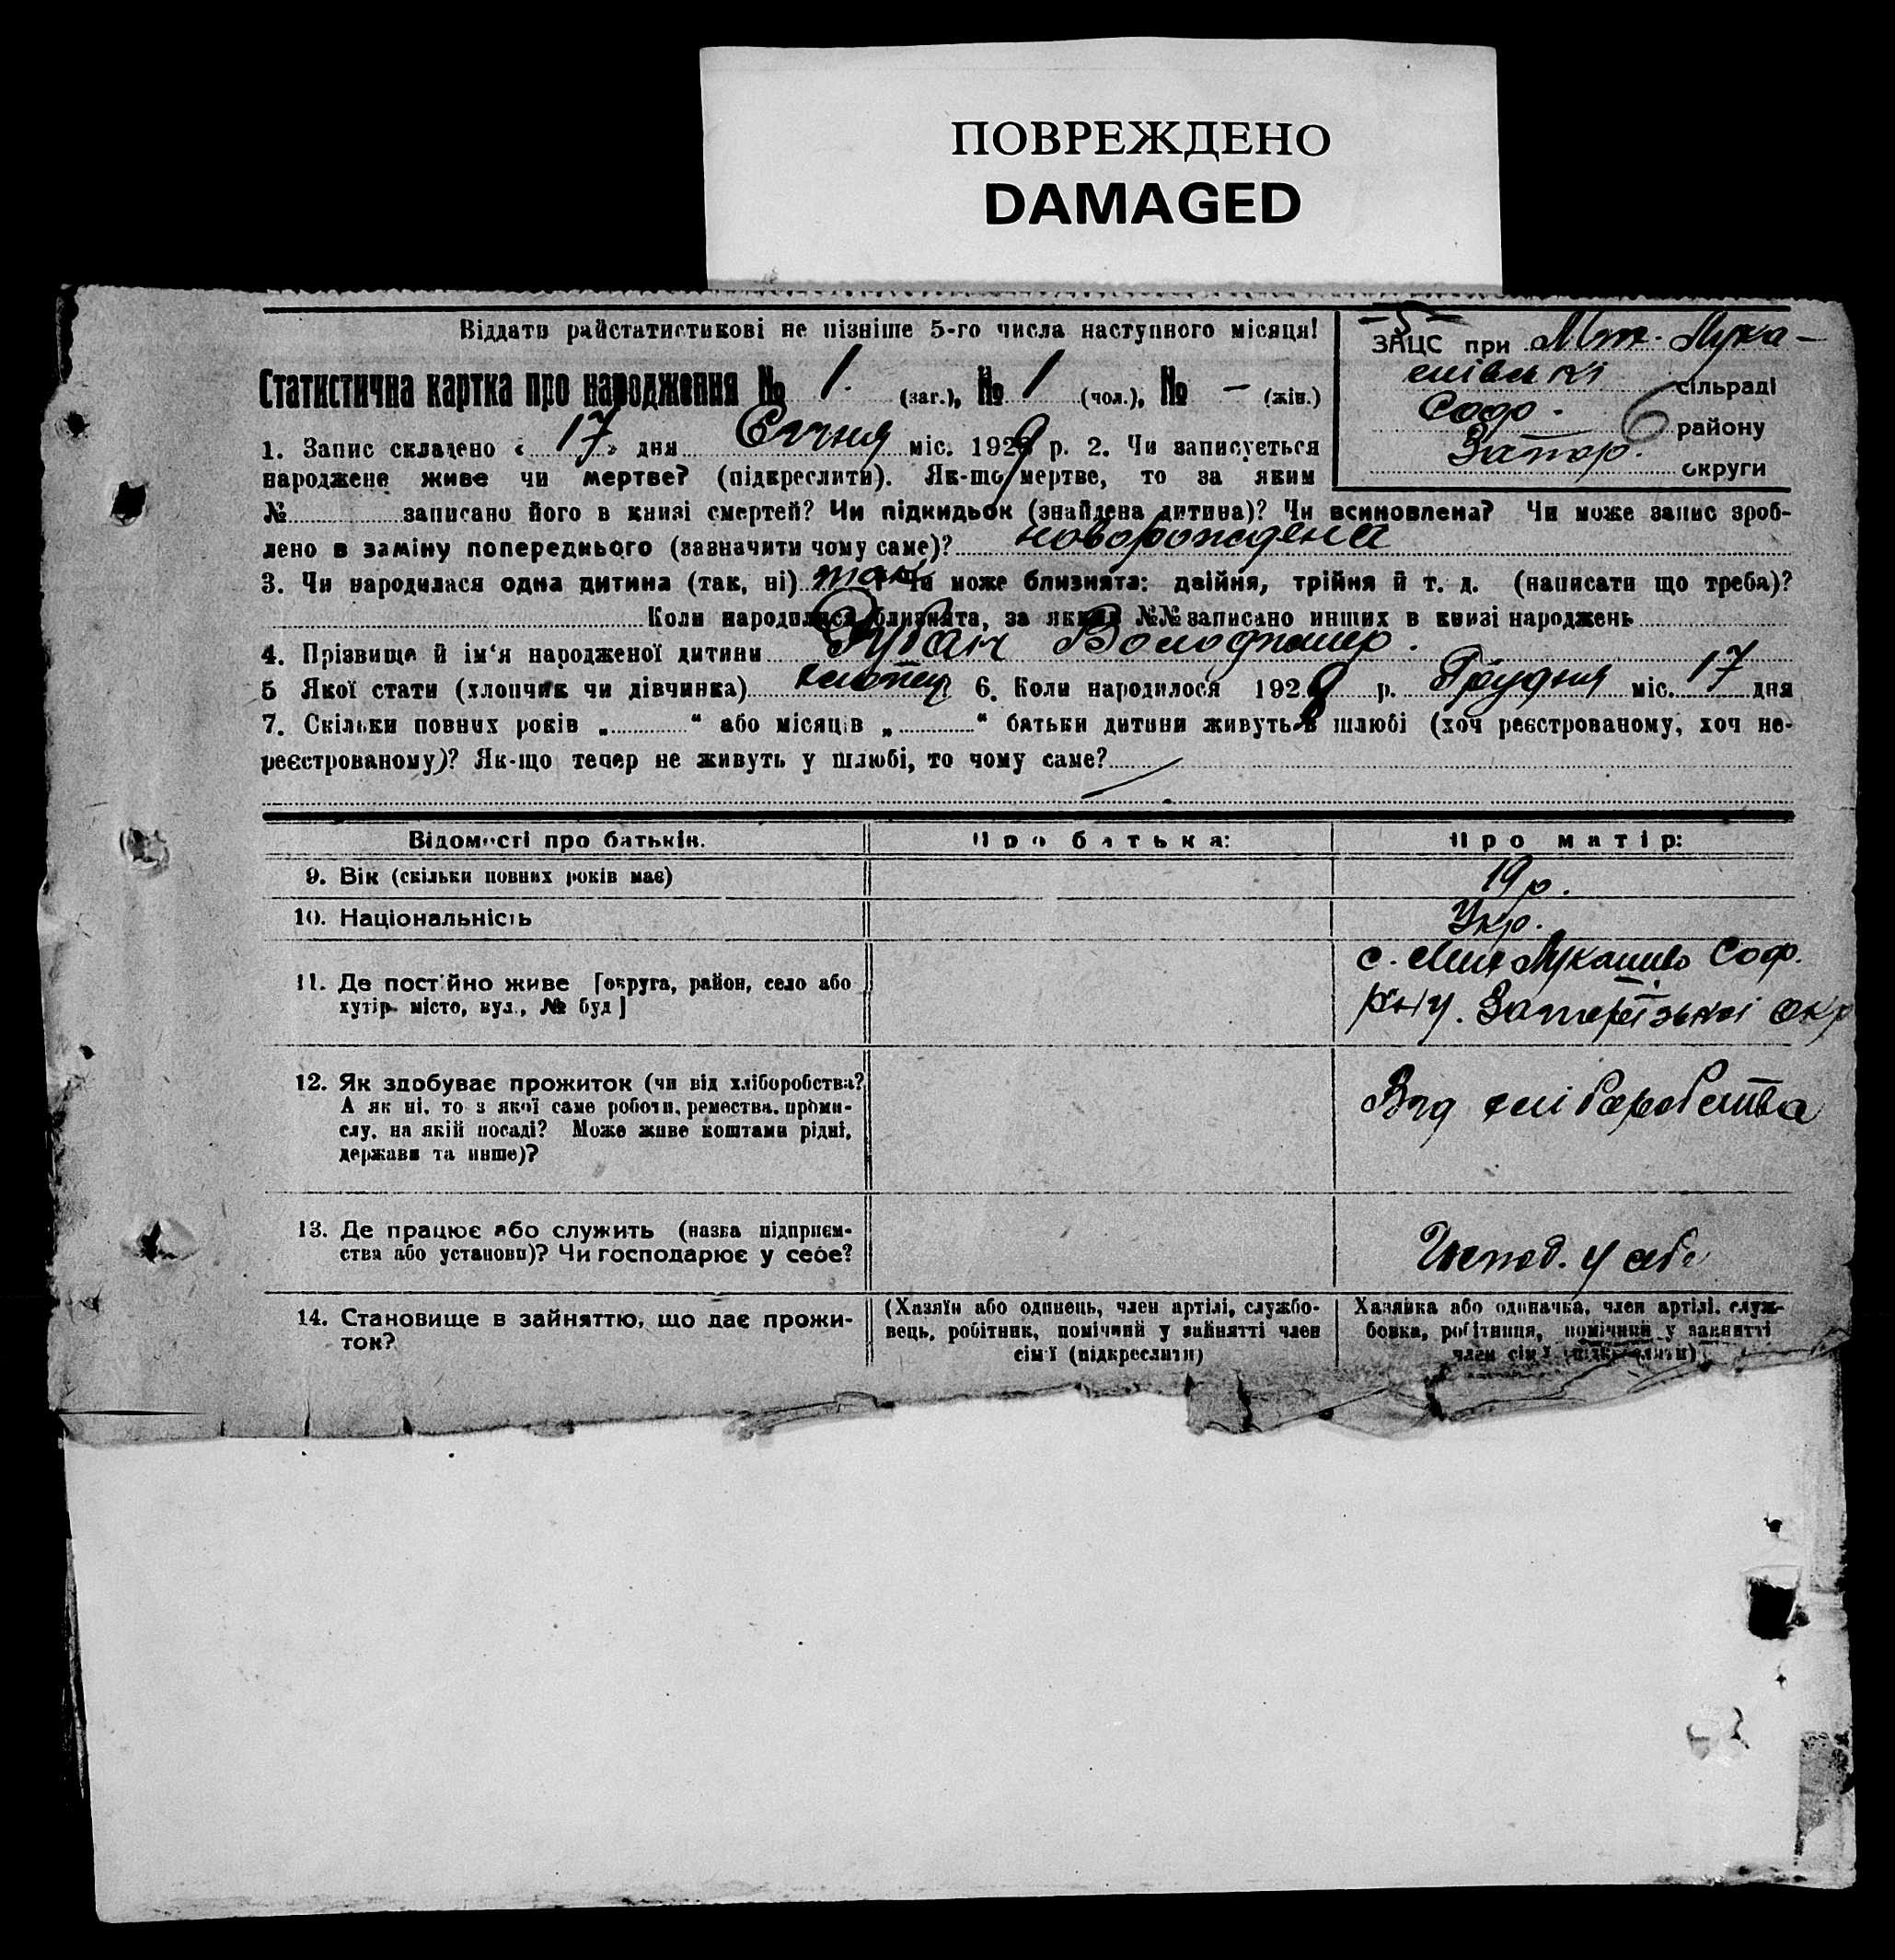 ПОВРЕЖДЕНО
DAMAGED
Віддати райстатистикові не пізніше 5-го числа наступного місяця!
Статистична картка про народження № 1. (заг.), № 1 (чол.), № – (жін.)
– 5 –
ЗАЦС при Мит. Лука-
шівськ сільраді
Соф. району
Запор. округи
6
1. Запис складено « 17 » дня Січня міс. 1929 р. 2. Чи записується
народжене живе чи мертве? (підкреслити). Як-що мертве, то за яким
№ записано його в книзі смертей? Чи підкидьок (знайдена дитина)? Чи всиновлена? Чи може запис зроб-
лено в заміну попереднього (зазначити чому саме)? новорожденa
3. Чи народилася одна дитина (так, ні) так Чи може близнята: двійня, трійня й т. д. (написати що треба)?
Коли народилися близнята, за якими №№ записано инших в книзі народжень
4. Прізвище й ім‘я народженої дитини Рубан Володимер.
5 Якої стати (хлопчик чи дівчинка) хлопец 6. Коли народилося 1928 р. Грудня міс. 17 дня
7. Скільки повних років „ “ або місяців „ “ батьки дитини живуть в шлюбі (хоч реєстрованому, хоч не-
реєстрованому)? Як-що тепер не живуть у шлюбі, то чому саме?
Відомості про батьків. Про батька: Про матір:
9. Вік (скільки повних років має) 19 р.
10. Національність Укр.
11. Де постійно живе [округа, район, село або
хутір місто, вул., № буд]
с. Мит Лукашиво Соф.
р-ну. Запорізькоі окр
12. Як здобуває прожиток (чи від хліборобства?
А як ні, то з якої саме роботи, ремества, проми-
слу, на якій посаді? Може живе коштами рідні,
держави та инше)?
Від хліборобства
13. Де працює або служить (назва підприєм-
ства або установи)? Чи господарює у себе?
Господ. у себе
14. Становище в зайняттю, що дає прожи-
ток?
(Хазяїн або одинець, член артілі, службо-
вець, робітник, помічний у зайнятті член
сім'ї (підкреслити)
Хазяйка або одиначка, член артілі, служ-
бовка, робітниця, помічний у зайнятті
член сім'ї (підкреслити)